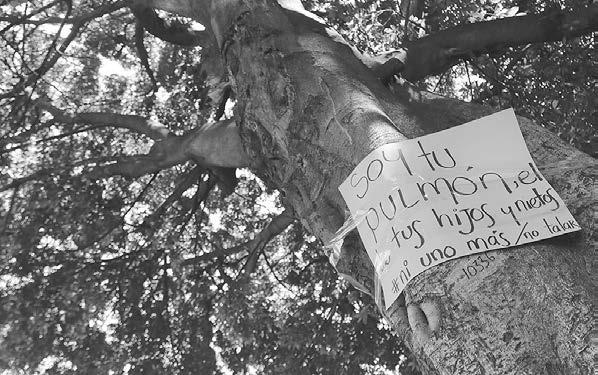 Soy tu
pulmón, el
de tus hijos y nietos
#ni uno más/no talar
10336